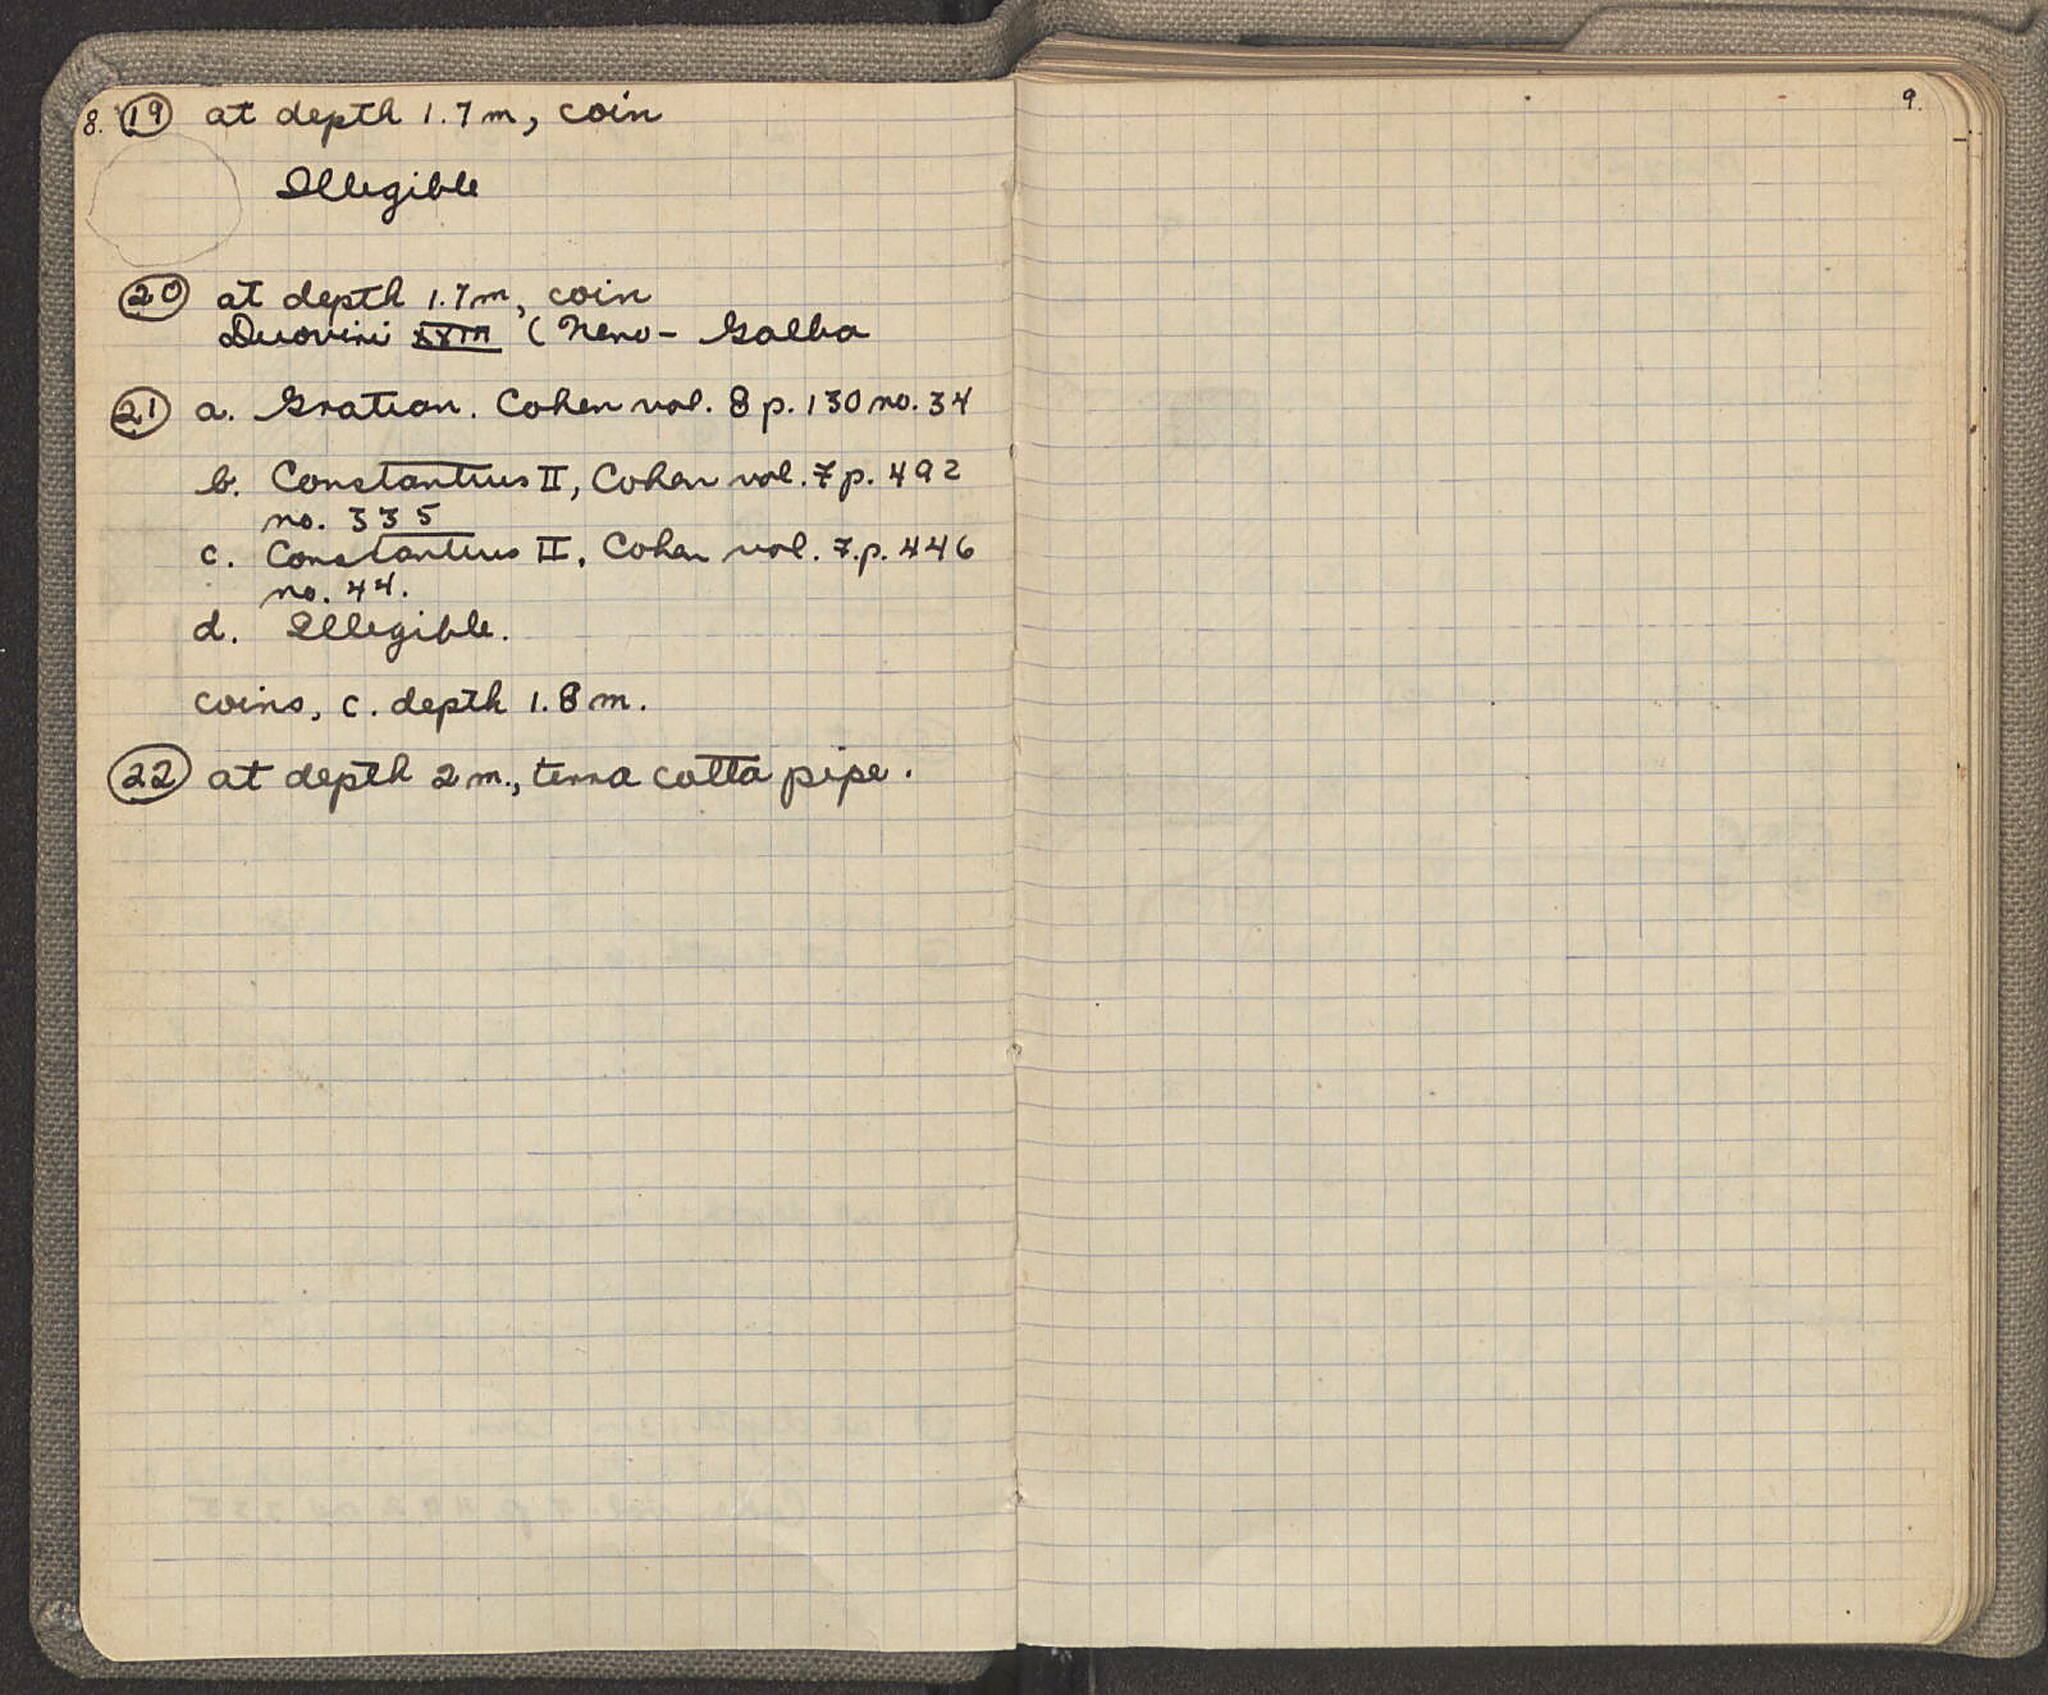 8. 19 at depth 1.7 m, coin
Illegible
20 at depth 1.7m, coin
Duoviri (Nero - Galba
21 a. Gratian. Cohen vol. 8 p. 130 no. 34
b. Constantius II, Cohen vol. 7 p. 492
no. 335
c. Constantius II, Cohen vol. 7. p. 446
no. 44.
d. Illegible.
coins, c. depth 1.8 m.
22 at depth 2 m., terra cotta pipe.
9.